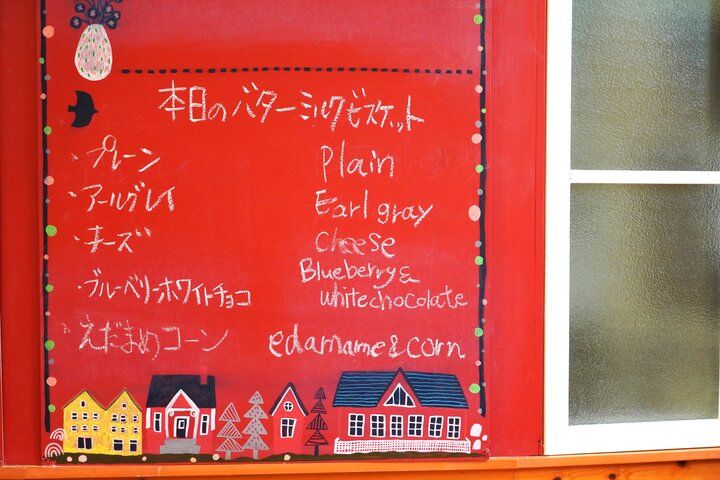 本日のバターミルクビスケット
・プレーン Plain
・アールグレイ Earl gray
・チーズ Cheese
・ブルーベリーホワイトチョコ Blueberry &
white chocolate
・えだまめコーン edamame & corn